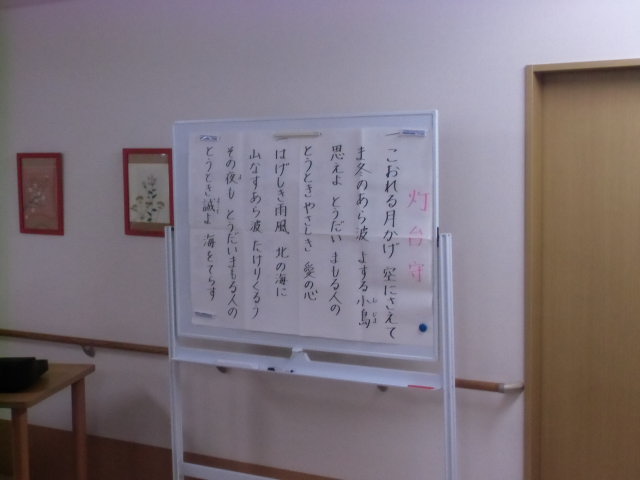 灯台守
一 こおれる月かげ 空にさえて
ま冬のあら波 よする小島
しま
思えよ とうだい まもる人の
とうとき やさしき 愛の心
はげしき雨風 北の海に
山なすあら波 たけりくるう
その夜も とうだいまもる人の
よ
とうとき誠よ 海をてらす